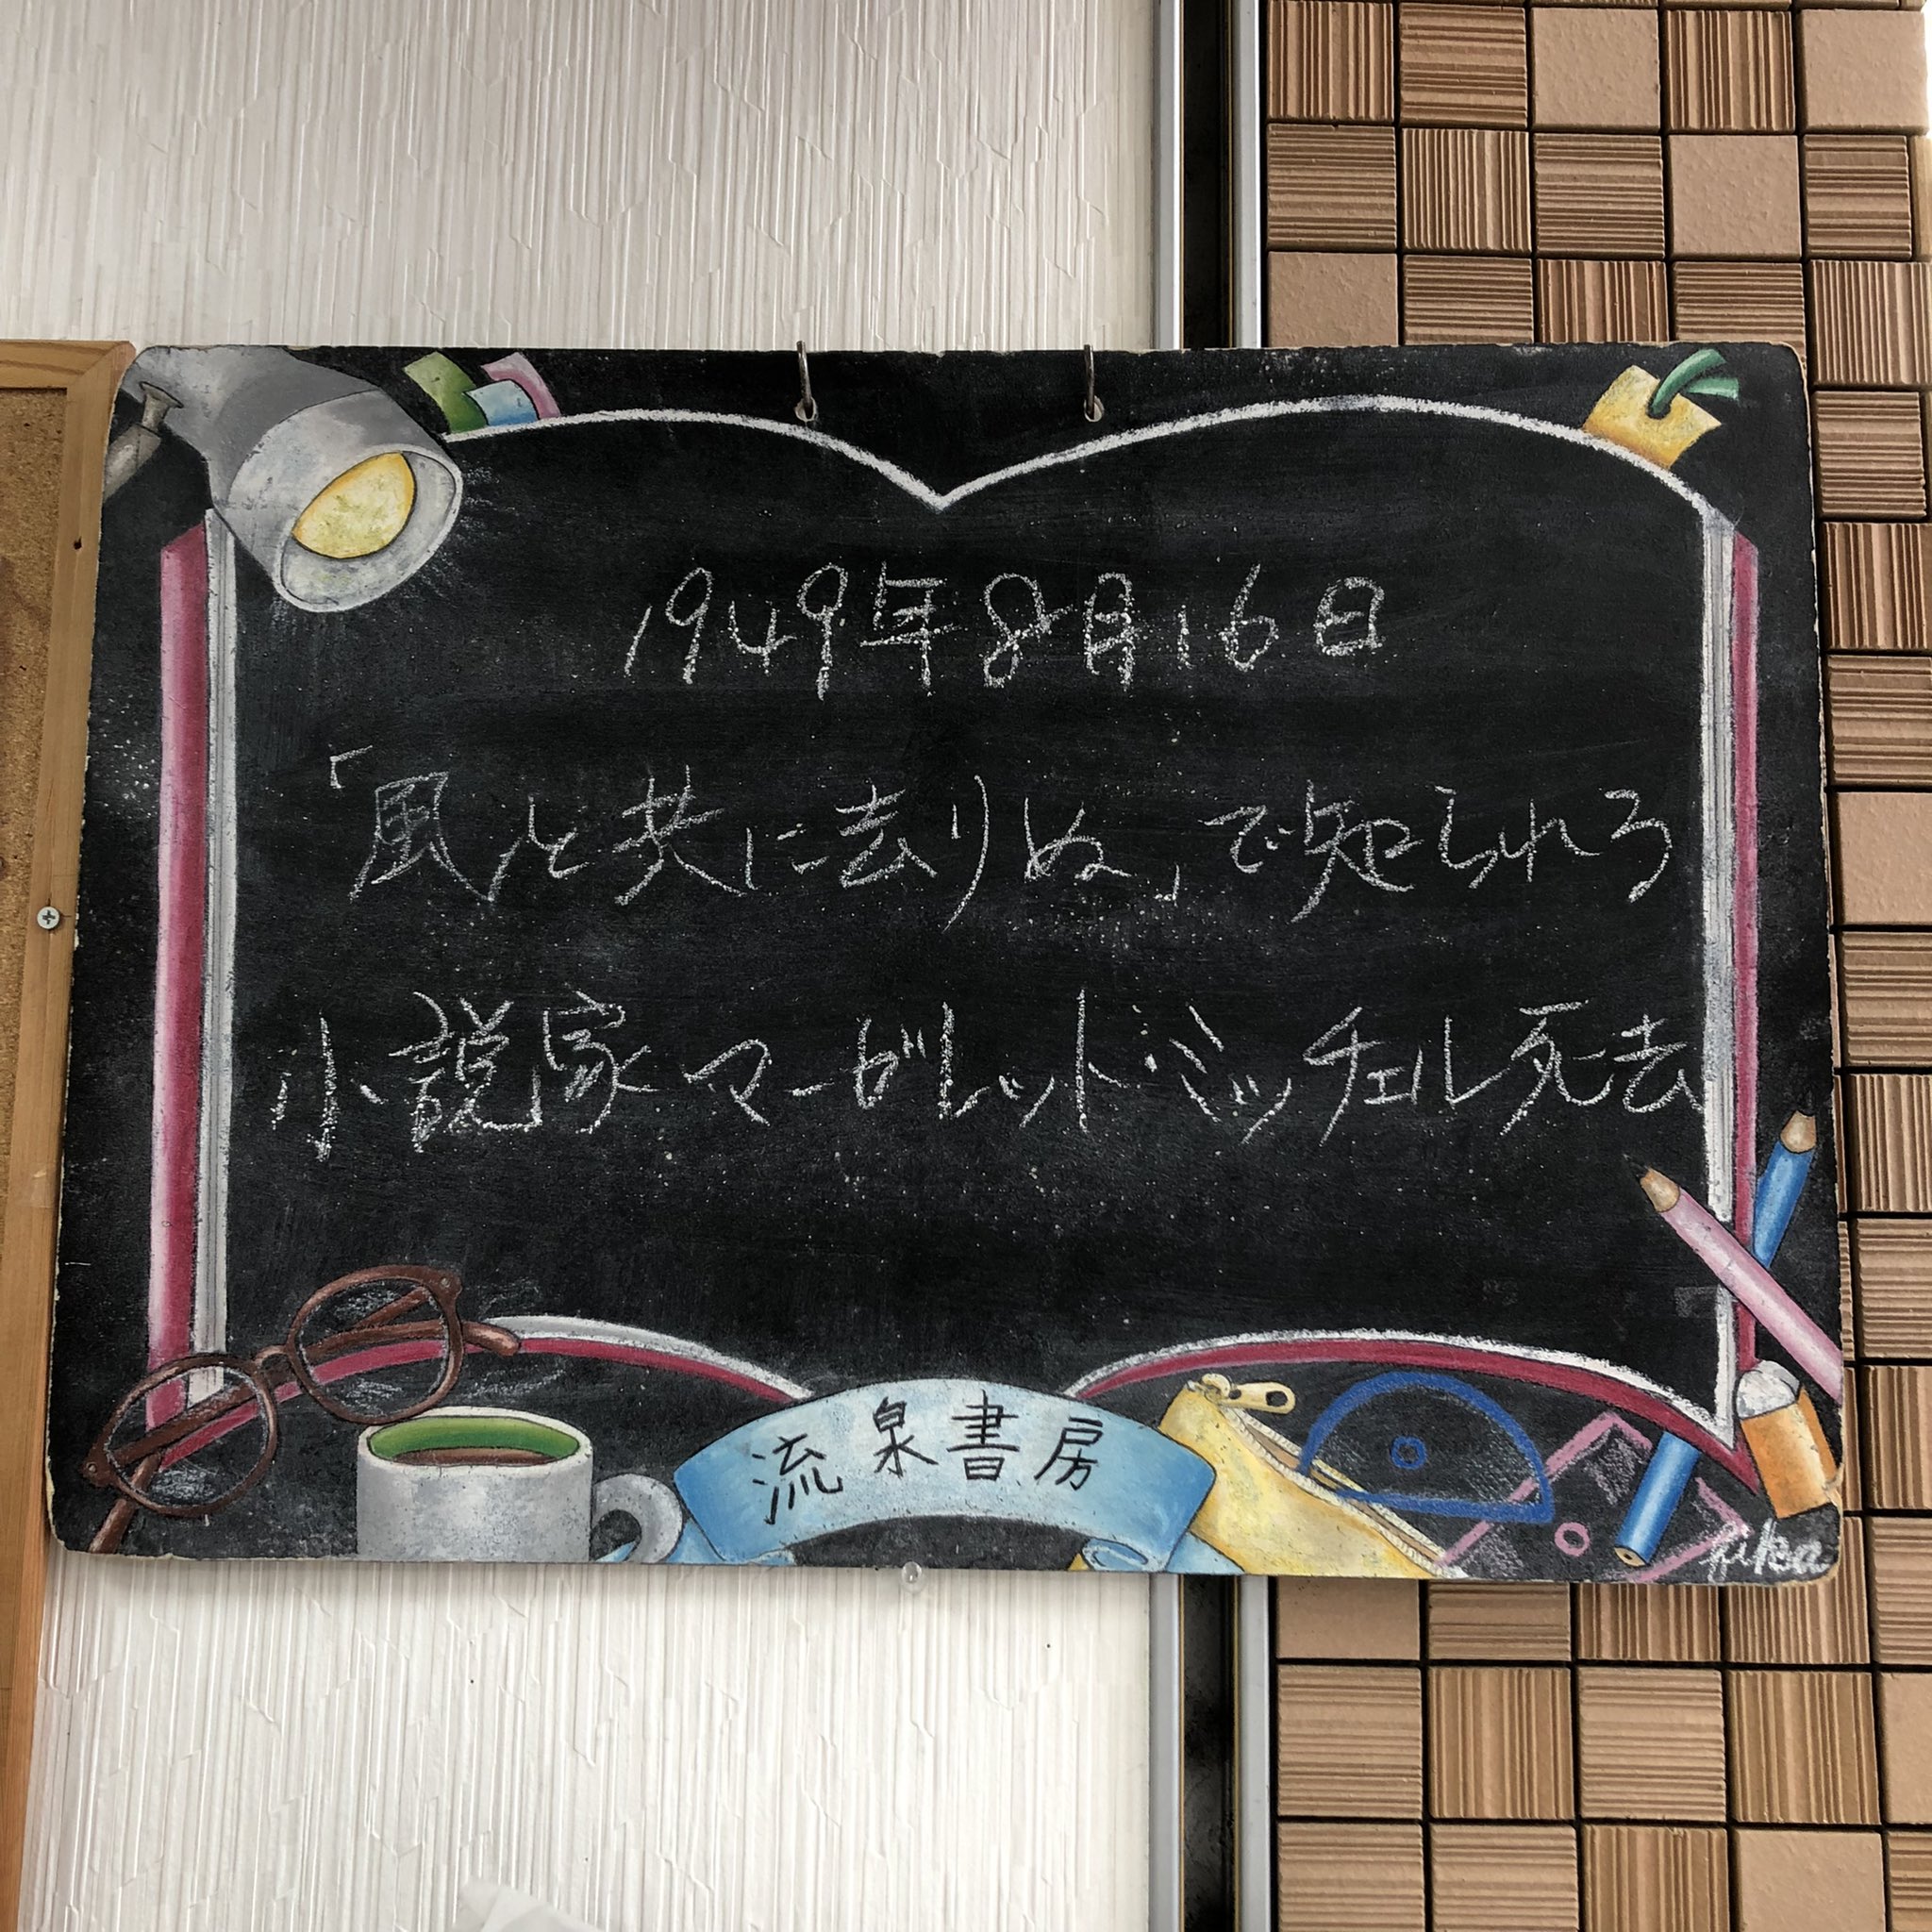 1949年8月16日
「風と共に去りぬ」で知られる
小説家マーガレット・ミッチェル死去
流泉書房
fuka